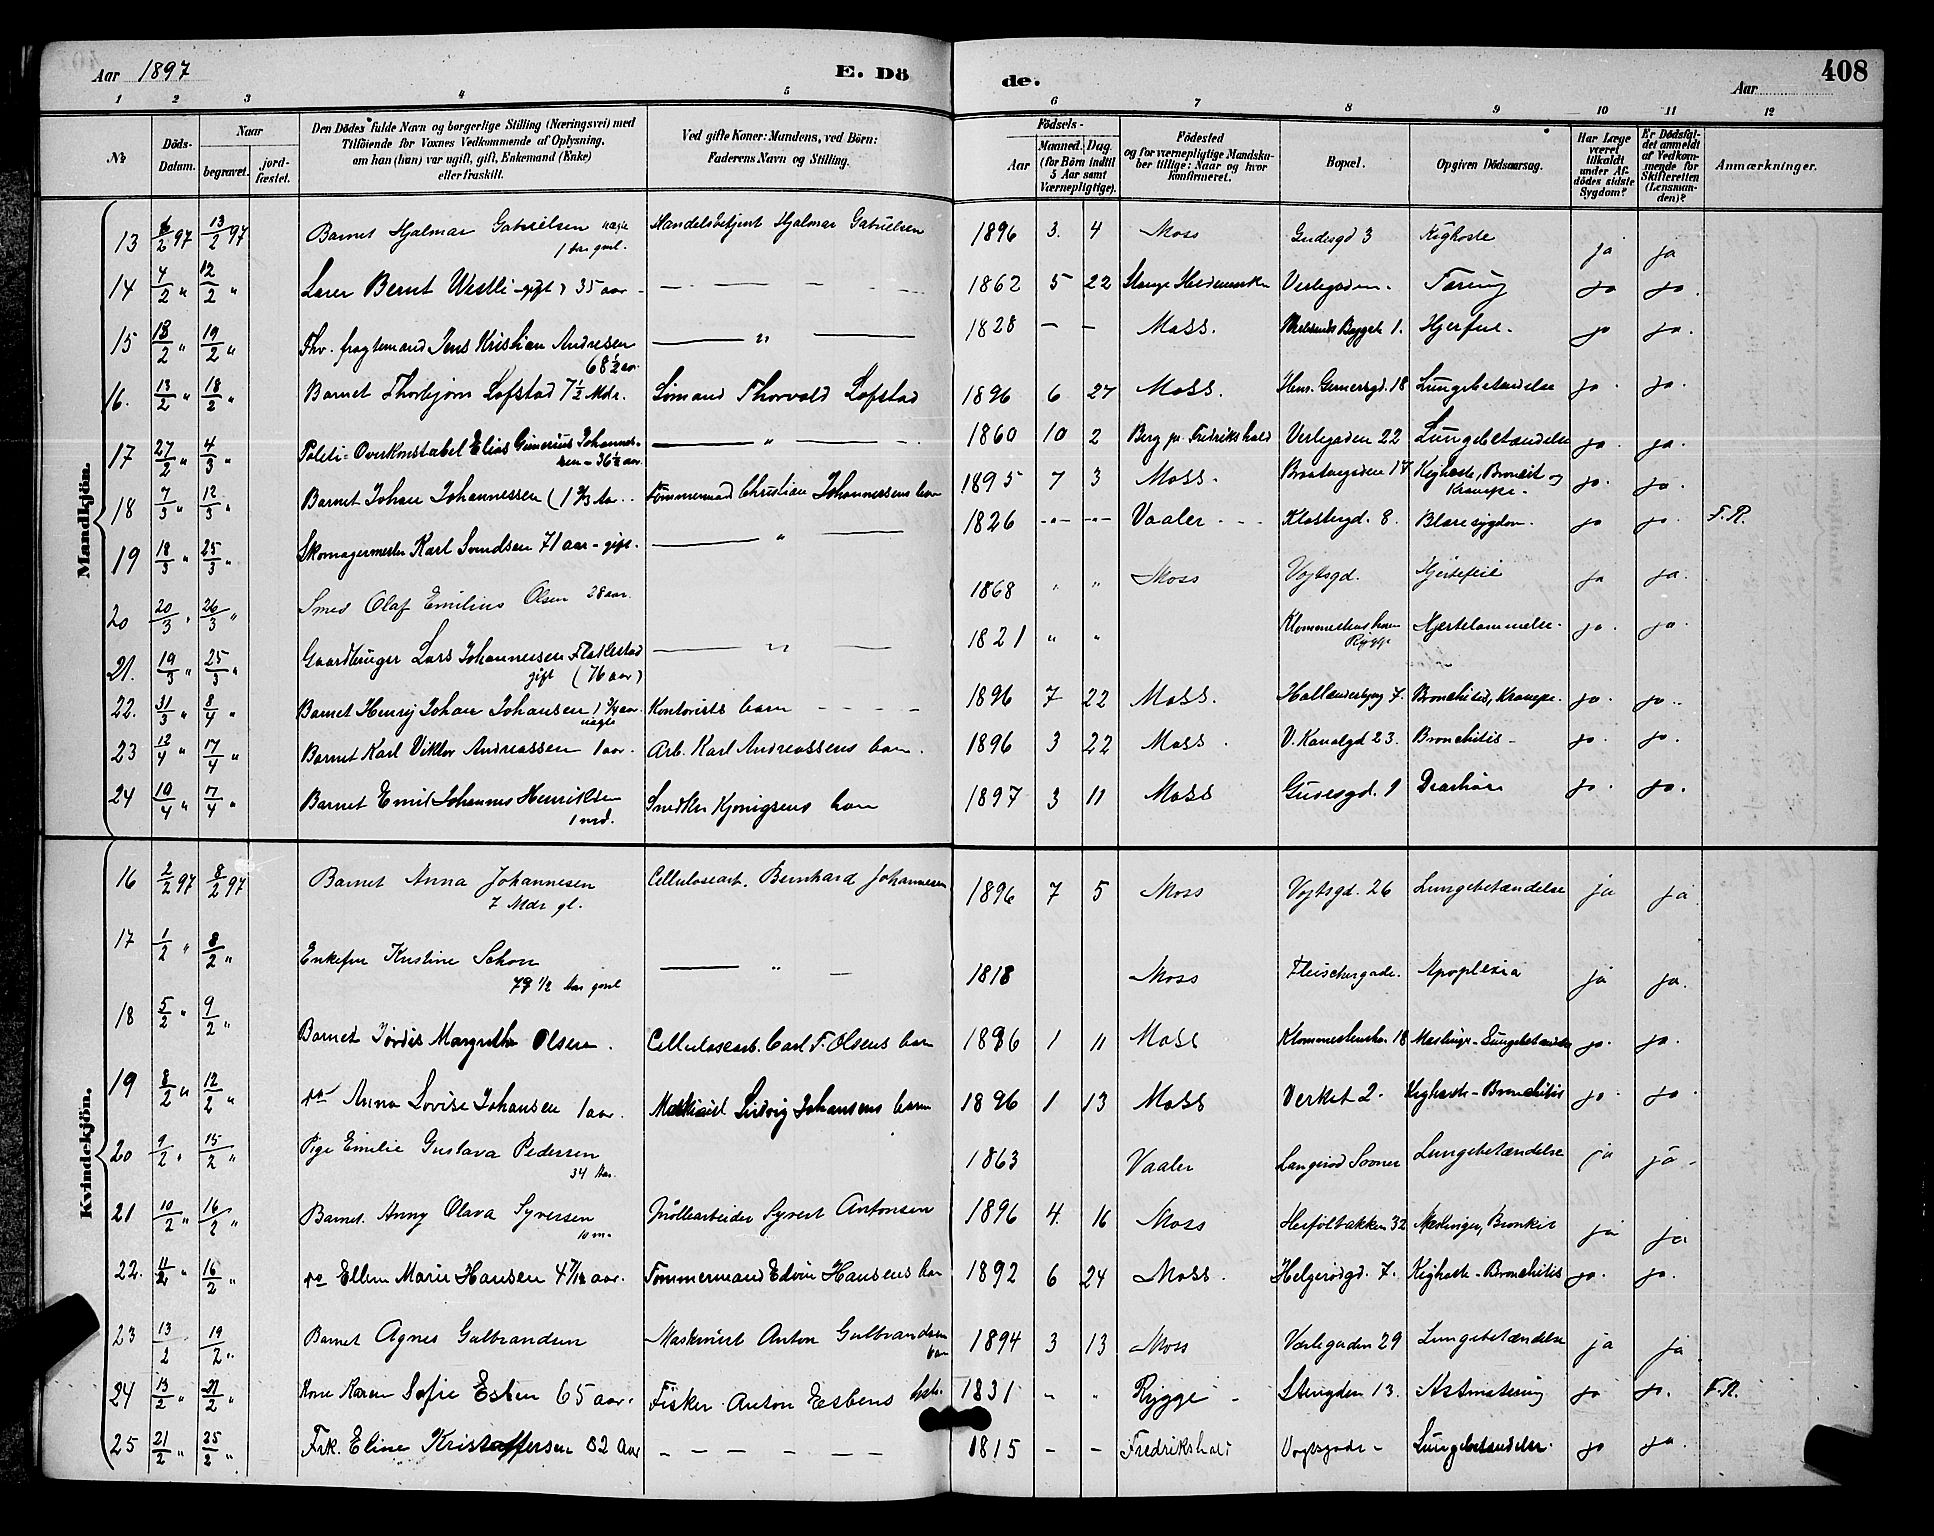 Aar 1897 E. Dö de. Aar 408
1 2 3 4 5 6 7 8 9 10 11 12
No Döds-Datum. Naar begravet. jordfæstet. Den Dödes fulde Navn og borgerlige Stilling (Næringsvei) med Tilföiende for Voxnes Vedkommende af Oplysning, om han (hun) var ugift, gift, Enkemand (Enke) eller fraskilt. Ved gifte Koner: Mandens, ved Börn: Faderens Navn og Stilling. Födsels- Aar Maaned. Dag. (for Börn indtil 5 Aar samt Værnepligtige). Födested og for værnepligtige Mandskaber tillige: Naar og hvor konfirmeret. Bopæl. Opgiven Dödsaarsag. Har Læge været tilkaldt under Afdödes sidste Sygdom? Er Dödsfaldet anmeldt af Vedkommende for Skifteretten (Lensmanden)? Anmærkninger.
Mandkjön.
13 6/2 97 13/2 97 Barnet Hjalmar Gabrielsen Handelsbetjent Hjalmar Gabrielsen 1896 3. 4 Moss Gudesgd 3 Kighoste ja ja
14 4/2 " 12/2 " Lærer Bernt Westli gift 35 aar 1862 5 22 Stange Hedemarken Verlegaden Tæring ja ja.
15 13/2 " 19/2 " Fhv. fragtemand Jens Kristian Andresen " 1828 — — Moss. 1. Hjerfeil. ja ja.
68½ aar
16. 13/2 " 18/2 " Barnet Thorbjørn Løfstad 7½ Mdr. Sømand Thorvald Løfstad 1896 6 27 Moss. Hens. Gernersgd. 18 Lungebetændelse ja. ja.
17 27/2 " 4/3 " Politi-Overkonstabel Elias Gunerius Johannes- " 1860 10 2 Berg pr. Fredrikshald Verlegaden 22 Lungebetændelse ja. ja.
sen - 36½ aar.
18 7/3 " 12/3 " Barnet Johan Johannessen Tømmermand Christian Johannessens barn 1895 7 3 Moss. Braatengaden 17 Kighoste, Bronchit og ja. ja.
Krampe.
19 18/3 " 25/3 " Skomagermester Karl Svendsen 71 aar - gift. " 1826 Vaaler Klostergd. 8. Blæresygdom. ja ja. F.R.
20 20/3 " 26/3 " Smed Olaf Emilius Olsen 28 aar. 1868 " " Moss Vogtsgd. Hjertefeil ja ja.
21. 19/3 " 25/3 " Gaardbruger Lars Johannessen Flatlestad " 1821 " " Klommestenshaven Hjertelammelse. ja. ja.
gift (76 aar) Rygge
22. 31/3 " 8/4 " Barnet Henry Johan Johansen Kontorists barn 1896 7 22 Moss. 7. Bronchitis, Krampe. ja. ja.
23 12/4 " 17/4 " Barnet Karl Viktor Andreassen 1 aar. Arb. Karl Andreassens barn. 1896 3 22 Moss. V. Kanalgd 23. Bronchitis - ja. ja.
24 10/4 " 17/4 " Barnet Emil Johannes Henriksen barn 1897 3 11 Moss Gudesgd. 9 Diarhøe ja. ja.
1 md.
Kvindekjön.
16 2/2 97 8/2 97 Barnet Anna Johannesen Cellulosearb. Bernhard Johannesen 1896 7 5 Moss Vogtsgd. 26 Lungebetændelse ja ja
7 Mdr gl.
17 1/2 " 8/2 " Enkefru Kristine Schou " 1818 Moss Fleischersgade. Apoplexia ja ja.
79 1/2 Aar gml
18 5/2 " 9/2 " Barnet Jørdis Margrethe Olsen. Cellulosearb. Carl F. Olsens barn 1896 1 11 Moss Klommestensha. 18 Mæslinge-Lungebetændelse ja. ja.
19 8/2 " 12/2 " do Anna Lovise Johansen 1 aar. Maskinist Ludvig Johansens barn 1896 1 13 Moss Verket 2. Kighoste-Bronchitis ja. ja.
20 9/2 " 15/2 " Pige Emilie Gustava Pedersen 1863 Vaaler Langerød Sooner Lungebetændelse ja ja
34 Aar.
21 10/2 " 16/2 " Barnet. Anny Olava Syversen Møllearbeider Syvert Antonsen 1896 4. 16 Moss Herfølbakken 32 Mæslinger, Bronkit ja ja
10 m.
22. 11/2 " 16/2 " do Ellen Marie Hansen 4 7/12 aar. Tømmermand Edvin Hansens bar 1892 6 24 Moss. Helgerødgd. 7. Kighoste-Bronchitis ja. ja.
23 13/2 19/2 " Barnet Agnes Gulbrandsen Maskinist Anton Gulbrandsen 1894 3 13 Moss Værlegaden 29 Lungebetændelse ja ja
barn
24 13/2 " 21/2 " Kone Karen Sofie Esben 65 aar. Fisker Anton Esbens hstr. 1831 " " Rygge Stengden 13. Astmatæring ja ja. F.R.
25 21/2 " 25/2 " Frk. Eline Kristoffersen 82 Aar 1815 — — Fredrikshald Vogtsgade - Lungebetændelse. ja ja.